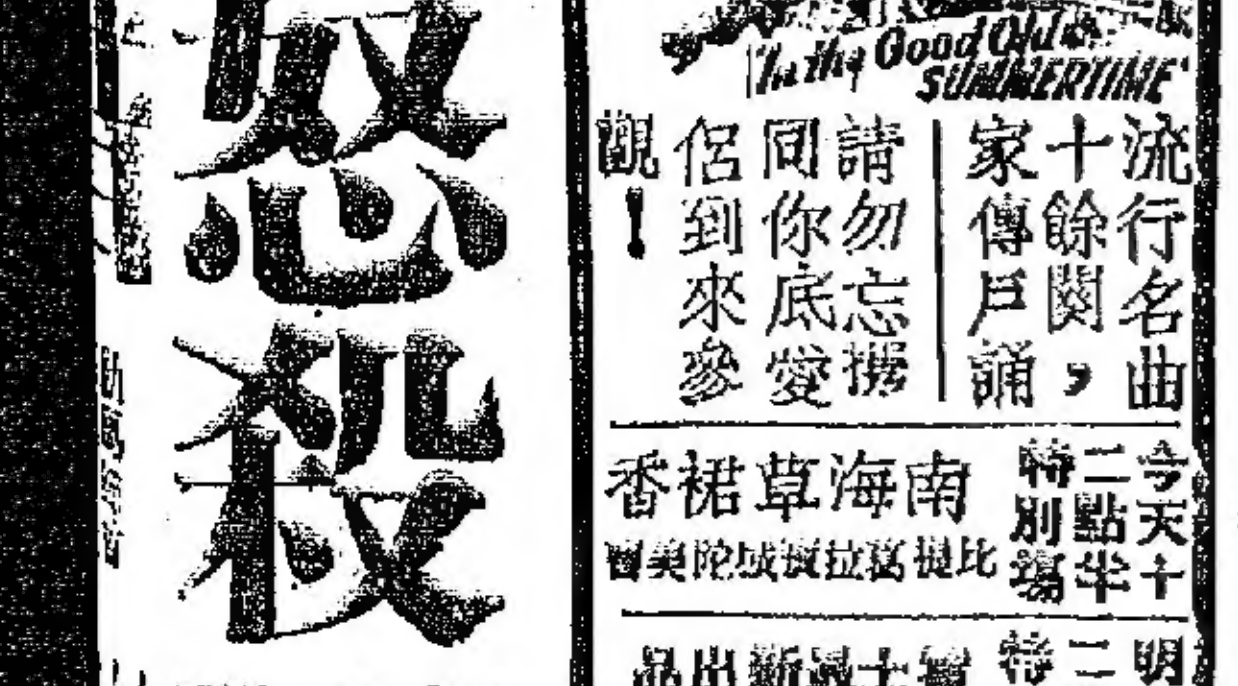 "In the Good Old
SUMMERTIME"
流行名曲
十餘闋，
家傳戶誦
請勿忘攜
同你底愛
侶到來參
觀！
今天十
二點半
特別場
南海草裙香
明
二
特
怒殺